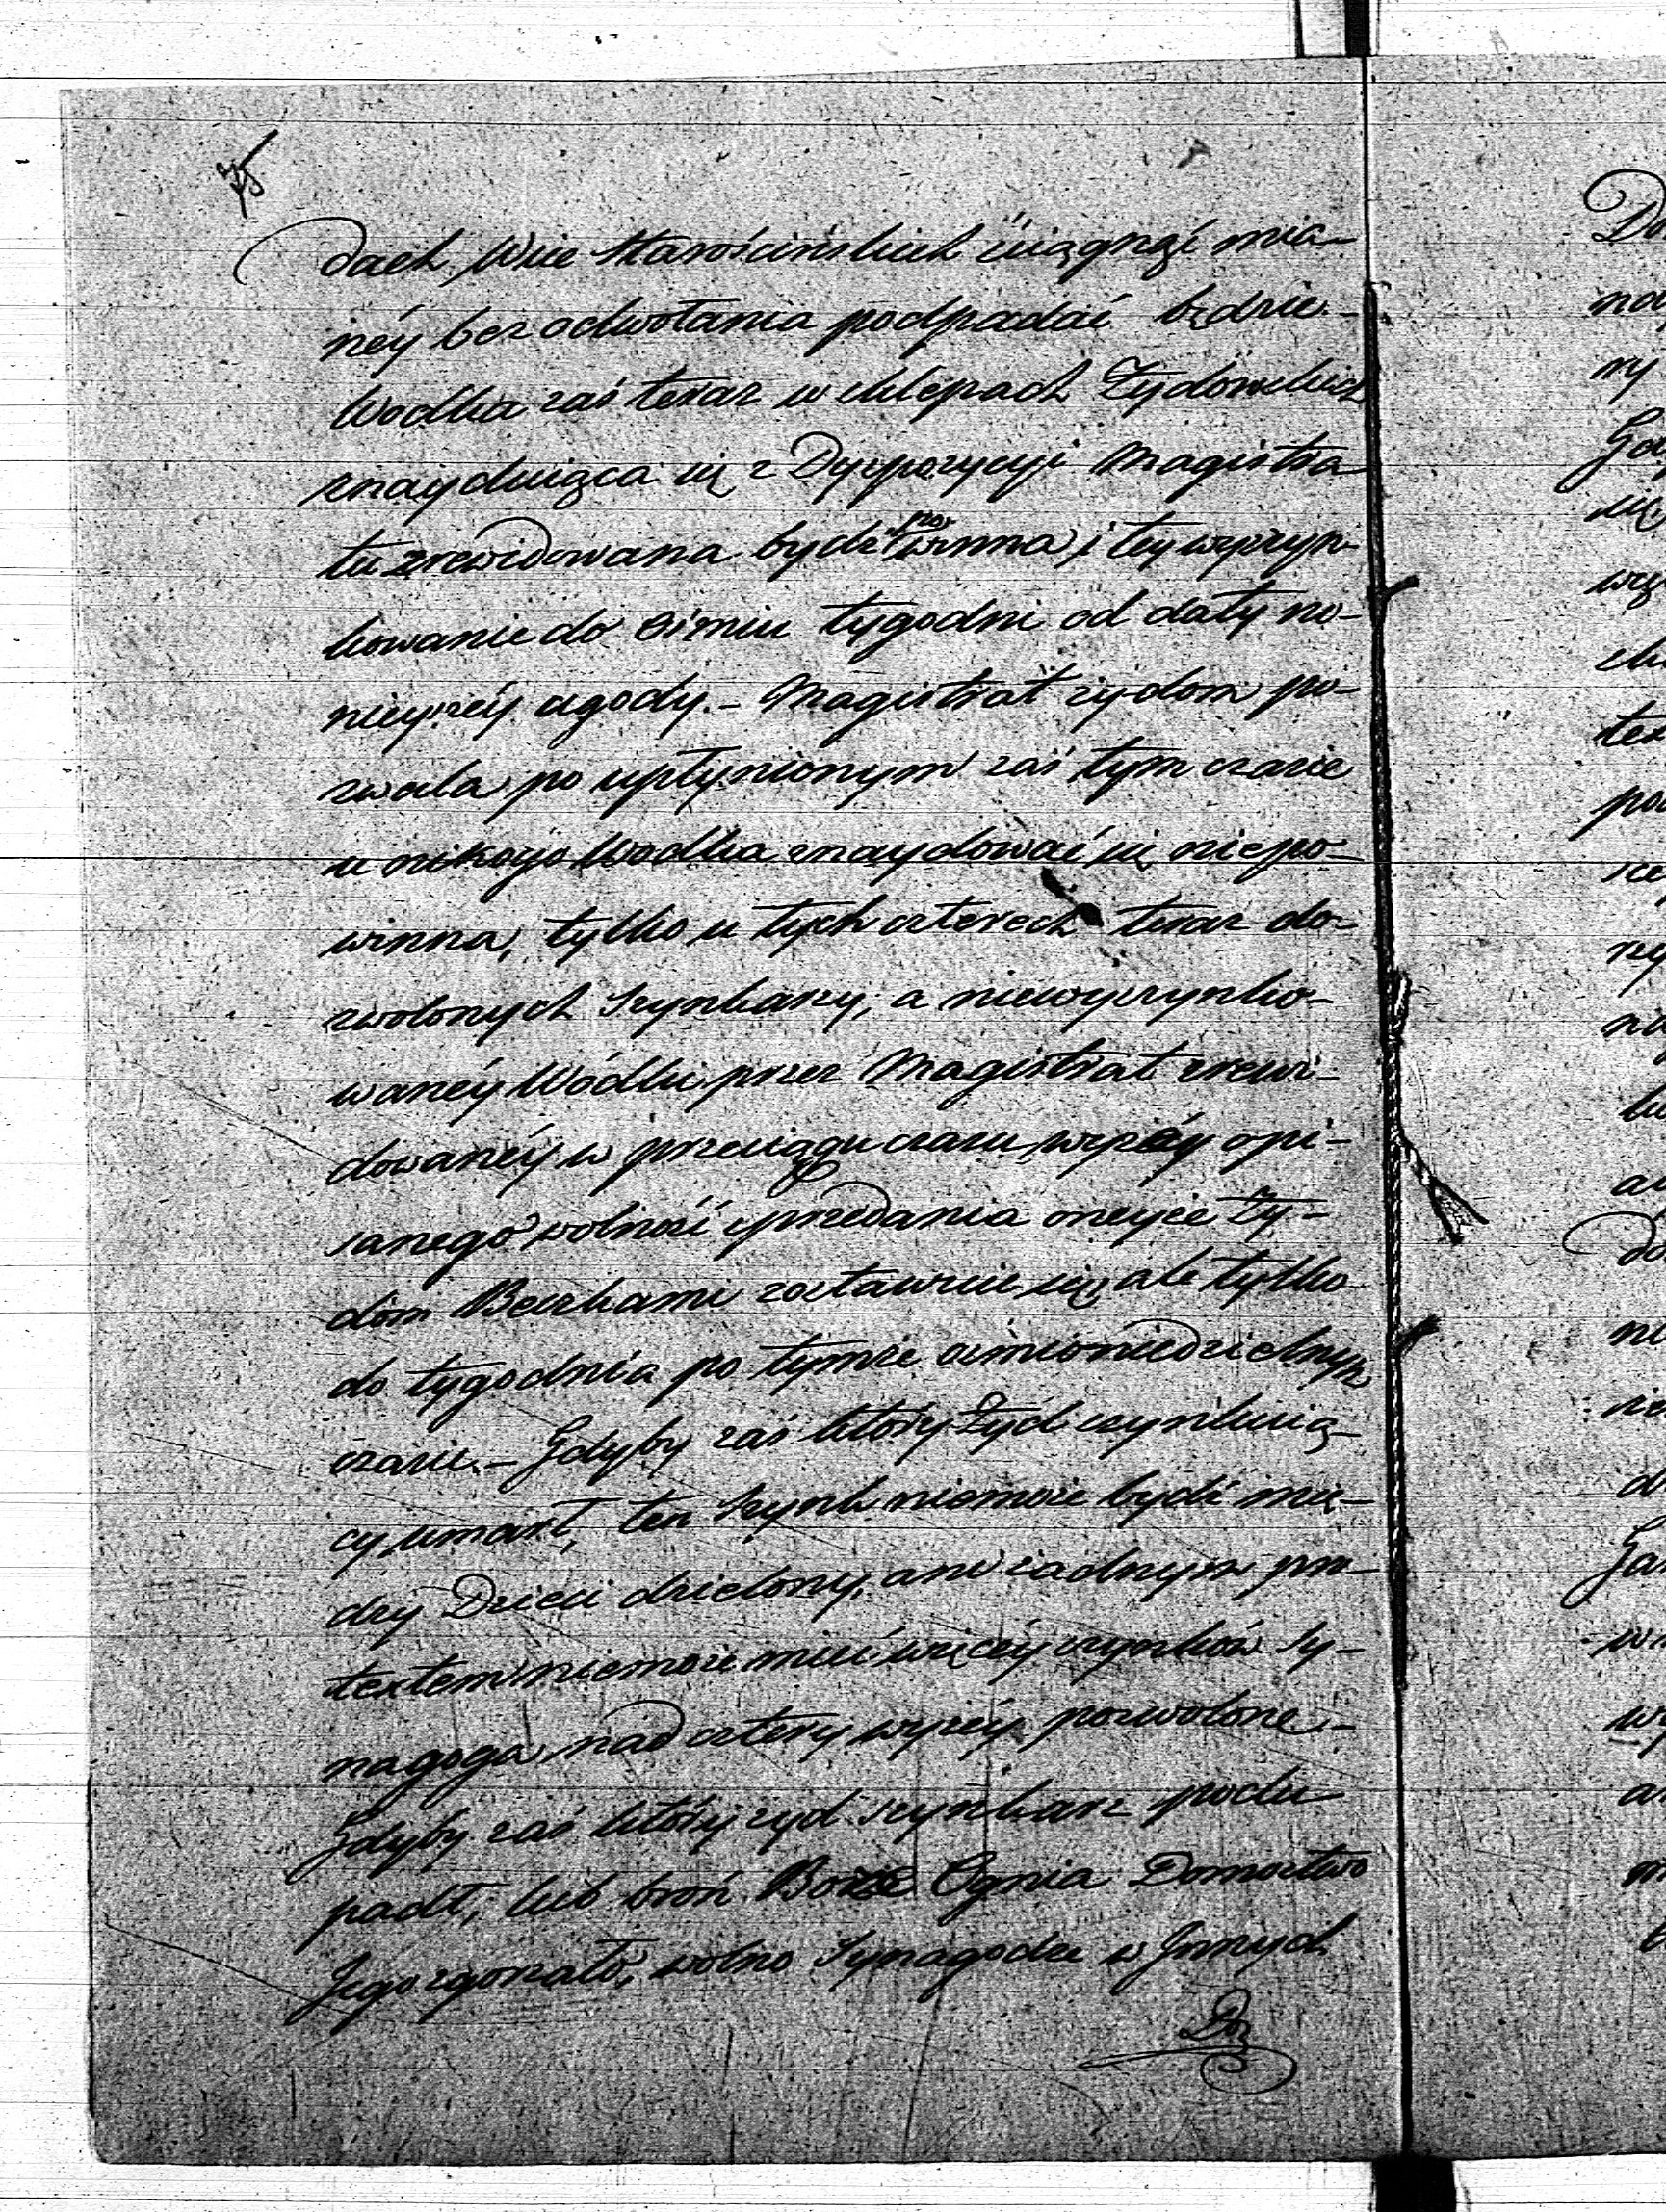 75
dach Wice Starościńskich ściągnąć mia-
néy bez odwołania podpadać będzie.-
Wodka zaś teraz w sklepach Żydowskich
znayduiąca się z Dyspozycyi Magistra-
tu zrewidowana bydź powinna, i tey wyszyn-
kowanie do ośmiu tygodni od daty ni-
nieyszéy ugody.- Magistrat żydom po-
zwala, po upłynionym zaś tym czasie
u nikogo Wodka znaydować się niepo-
winna, tylko u tych czterech teraz do-
zwolonych szynkarzy; a niewyszynko-
wanéy Wódki przez Magistrat zrewi-
dowanéy w przeciągu czasu wyżéy opi-
sanego wolność sprzedania oneyże Ży-
dóm Beczkami zostawuie się, ale tylko
do tygodnia po tymże ośmioniedzielnym
czasie.- Gdyby zaś który Żyd szynkuią-
cy umarł, ten szynk niemoże bydź mię-
dzy Dzieci dzielony, ani żadnym pre-
textem niemoże mieć więcéy szynków Sy-
nagoga nad cztery wyżéy pozwolone.-
Gdyby zaś który żyd szynkarz podu-
padł, lub broń Boże Ognia Domostwo
Jego zgorzało, wolno Synagodze w Jnnych
Do